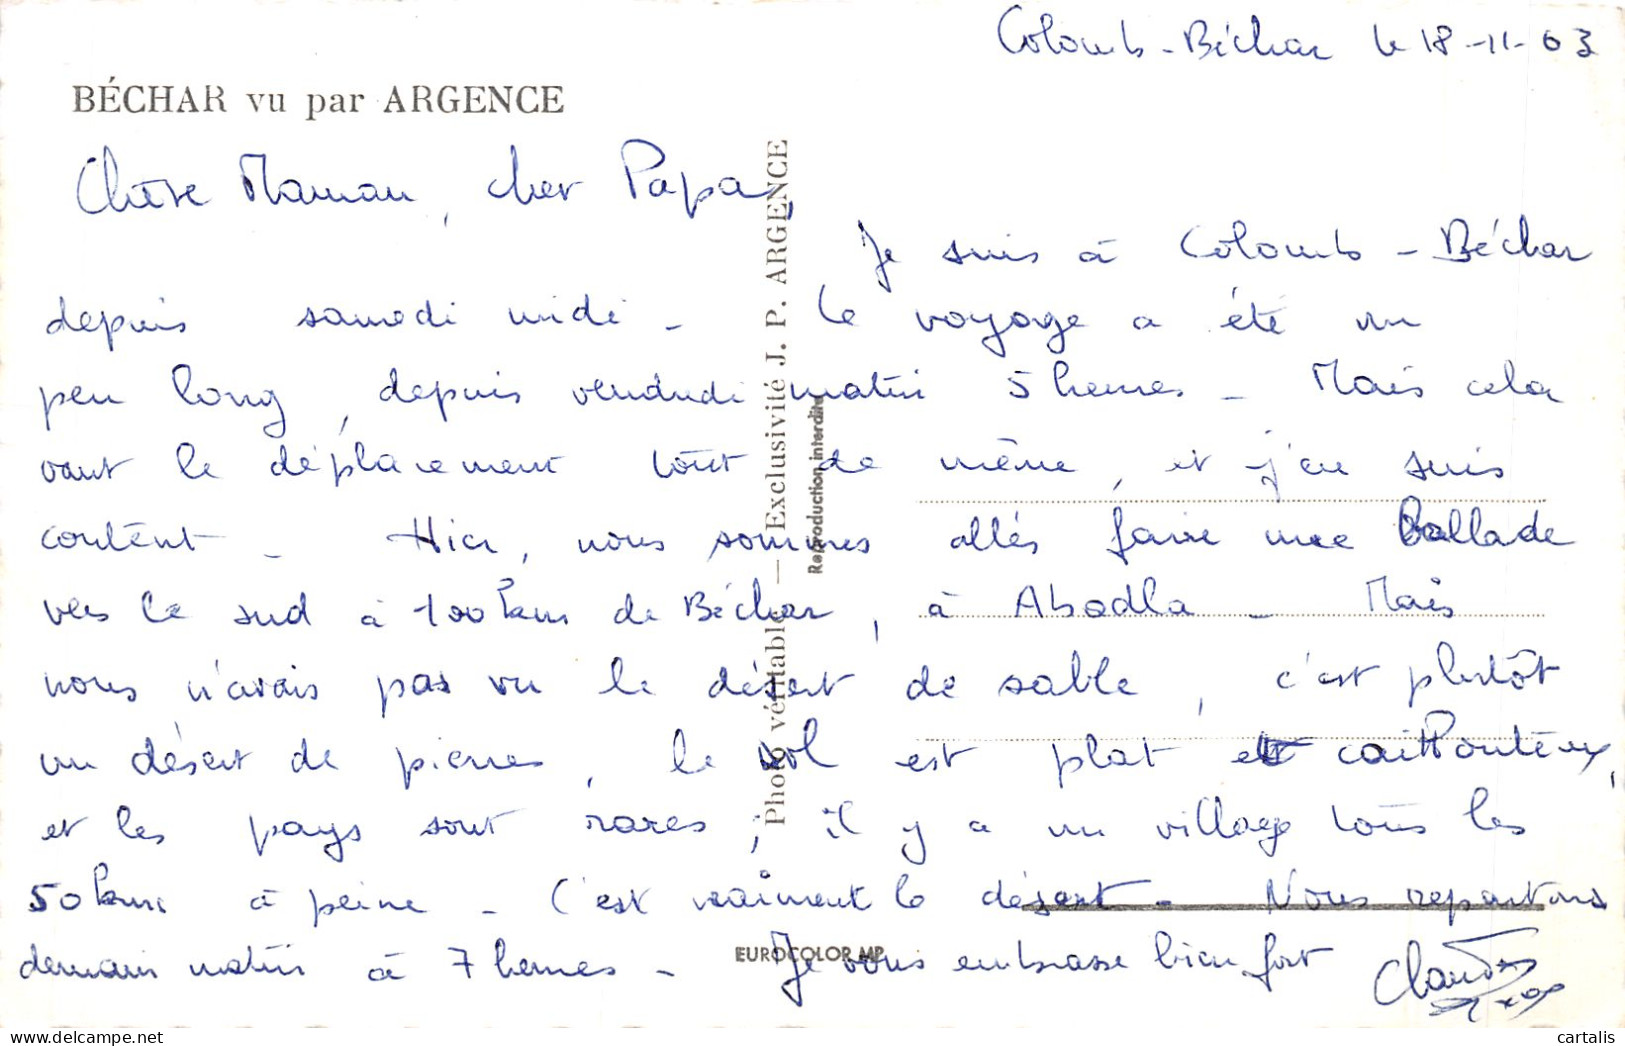 Colomb-Béchar le 18-11-63
BÉCHAR vu par ARGENCE
Chère Maman, cher Papa,
Je suis à Colomb-Béchar
depuis samedi midi - Le voyage a été un
peu long, depuis vendredi matin 5 heures - Mais cela
vaut le déplacement tout de même, et j'en suis
content - Hier, nous sommes allés faire une ballade
vers le sud à 100 km de Béchar, à Abadla - Mais
nous n'avais pas vu le désert de sable, c'est plutôt
un désert de pierres, le sol est plat et caillouteux,
et les pays sont rares, il y a un village tous les
50 km à peine - C'est vraiment le désert - Nous repartons
demain matin à 7 heures - Je vous embrasse bien fort
Photo véritable — Exclusivité J. P. ARGENCE
Reproduction interdite
EUROCOLOR MP
© cartalis